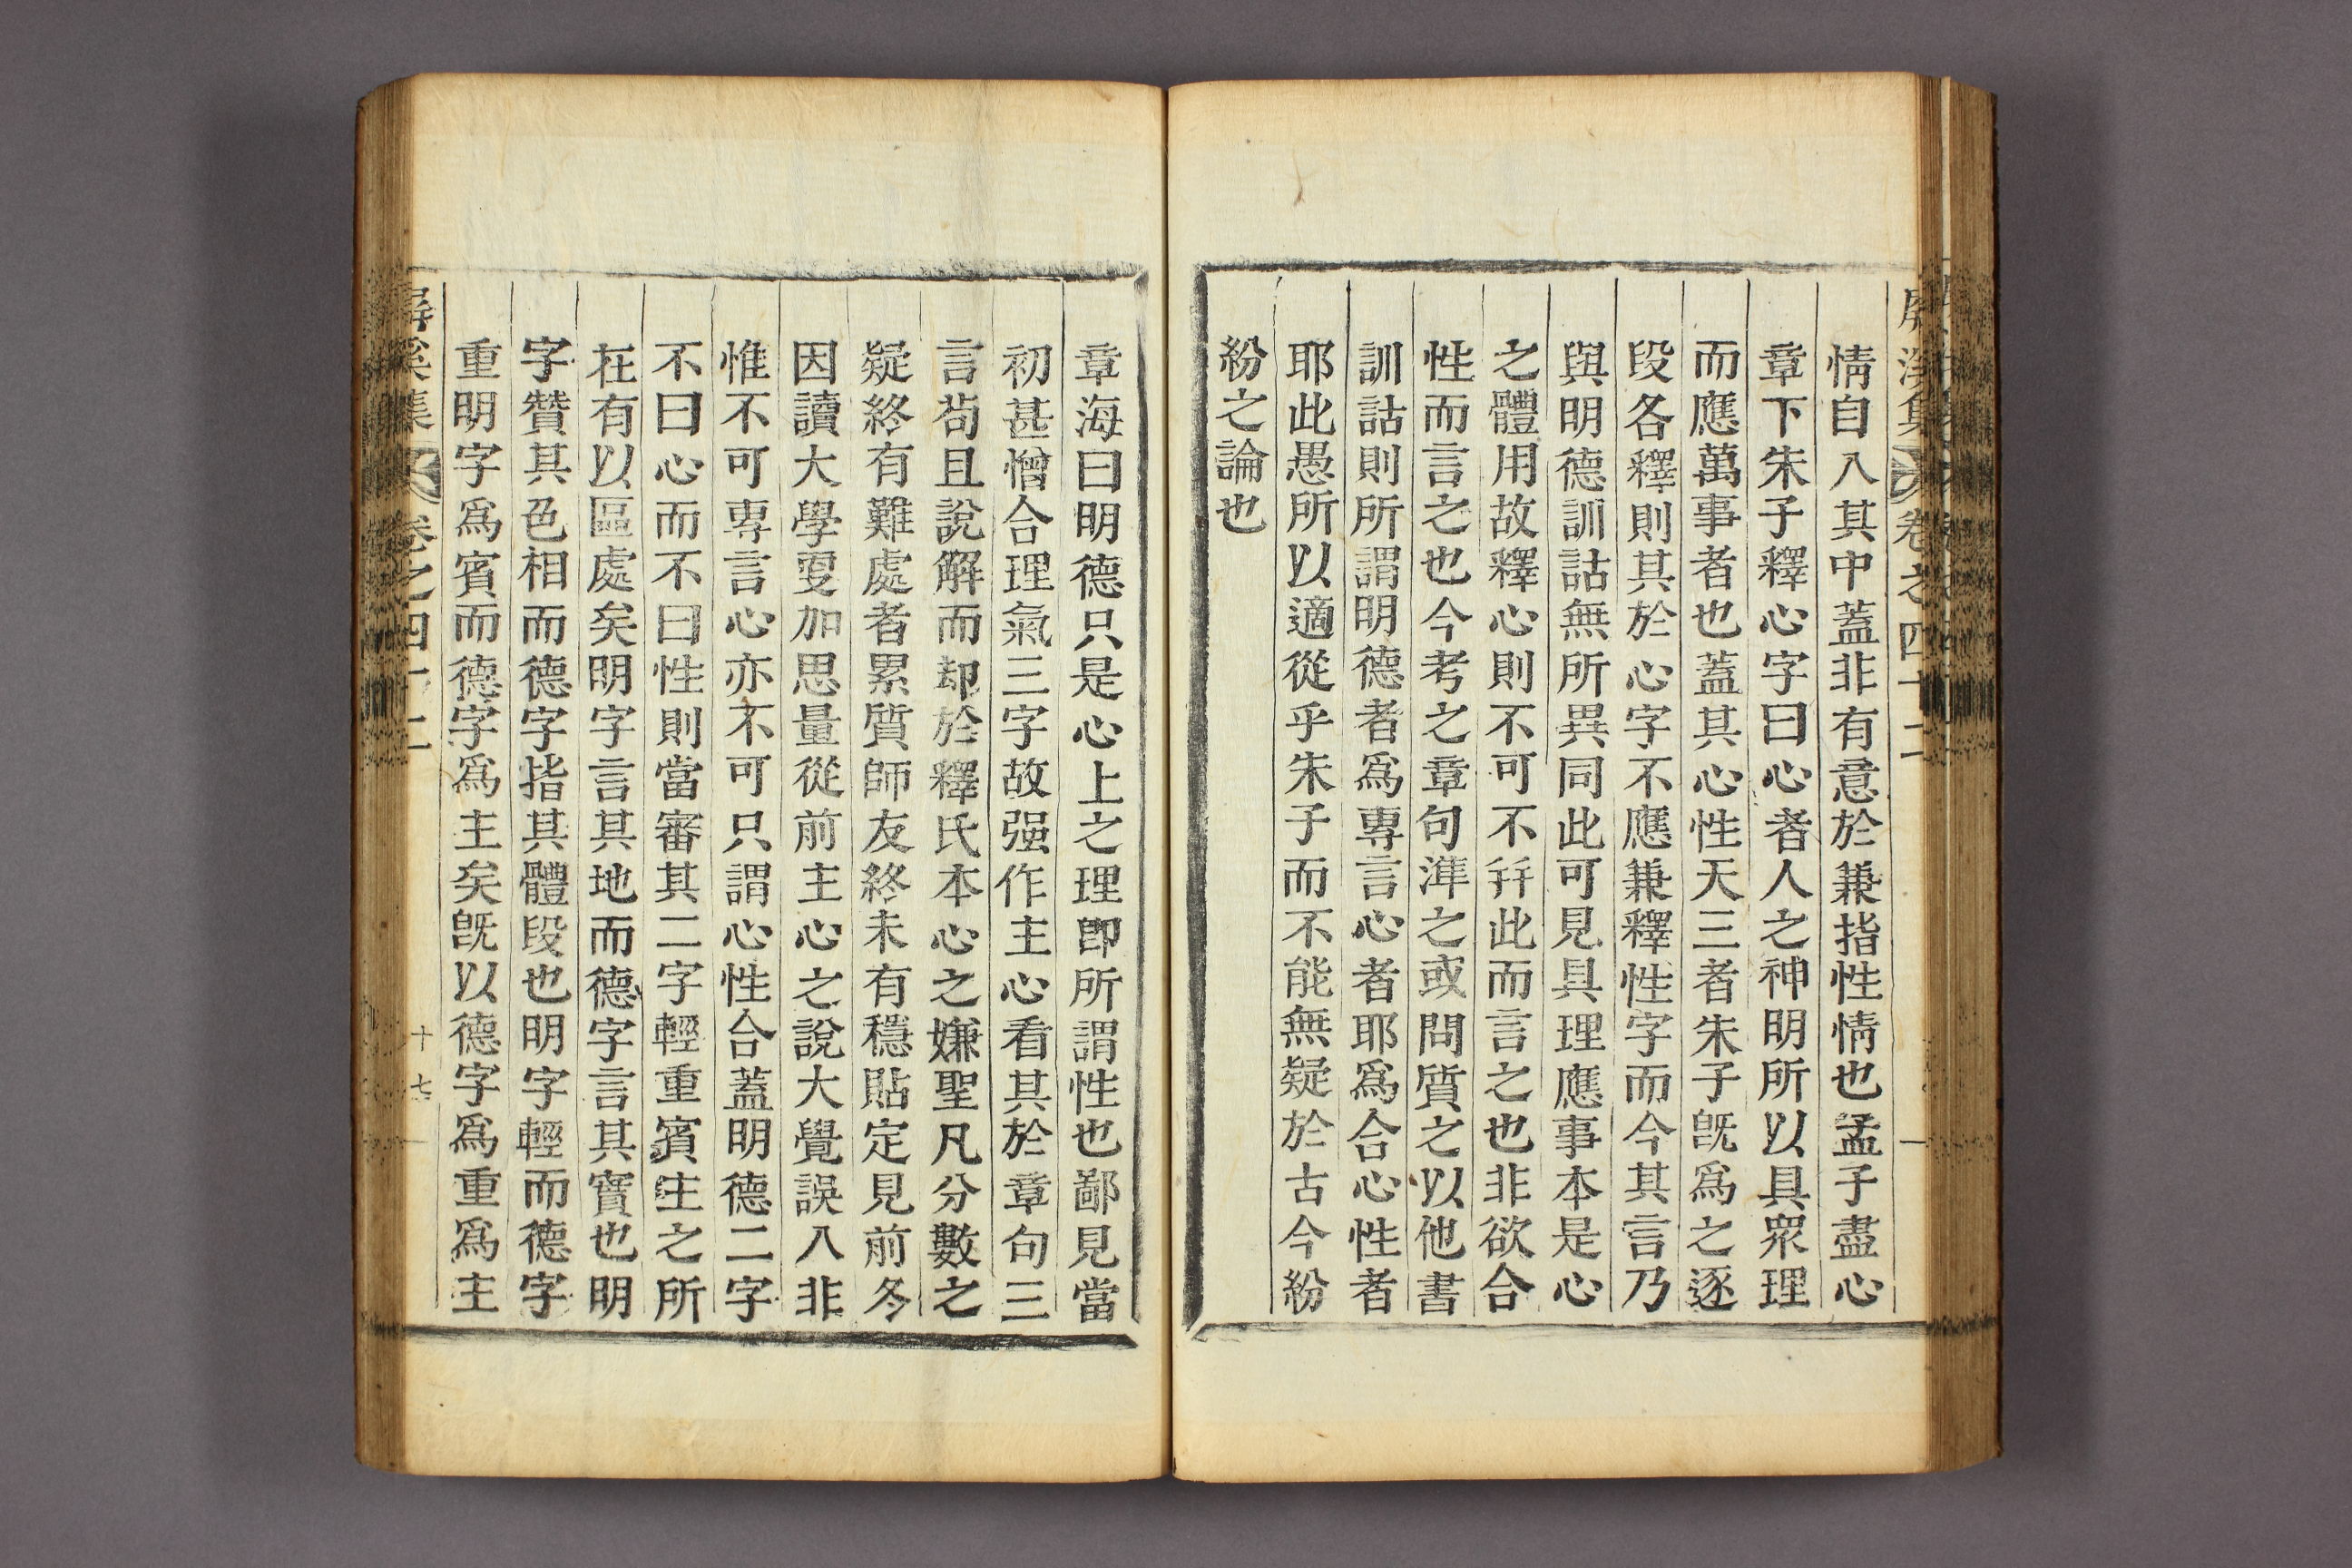 屏溪集 卷之四十二
情自入其中蓋非有意於兼指性情也孟子盡心
章下朱子釋心字曰心者人之神明所以具衆理
而應萬事者也蓋其心性天三者朱子旣爲之逐
段各釋則其於心字不應兼釋性字而今其言乃
與明德訓詁無所異同此可見具理應事本是心
之體用故釋心則不可不幷此而言之也非欲合
性而言之也今考之章句準之或問質之以他書
訓詁則所謂明德者爲專言心者耶爲合心性者
耶此愚所以適從乎朱子而不能無疑於古今紛
紛之論也
章海曰明德只是心上之理卽所謂性也鄙見當
初甚憎合理氣三字故强作主心看其於章句三
言苟且說解而却於釋氏本心之嫌聖凡分數之
疑終有難處者累質師友終未有穩貼定見前冬
因讀大學更加思量從前主心之說大覺誤入非
惟不可專言心亦不可只謂心性合蓋明德二字
不曰心而不曰性則當審其二字輕重賓主之所
在有以區處矣明字言其地而德字言其實也明
字贊其色相而德字指其體段也明字輕而德字
重明字爲賓而德字爲主矣旣以德字爲重爲主
屏溪集 卷之四十二 十七